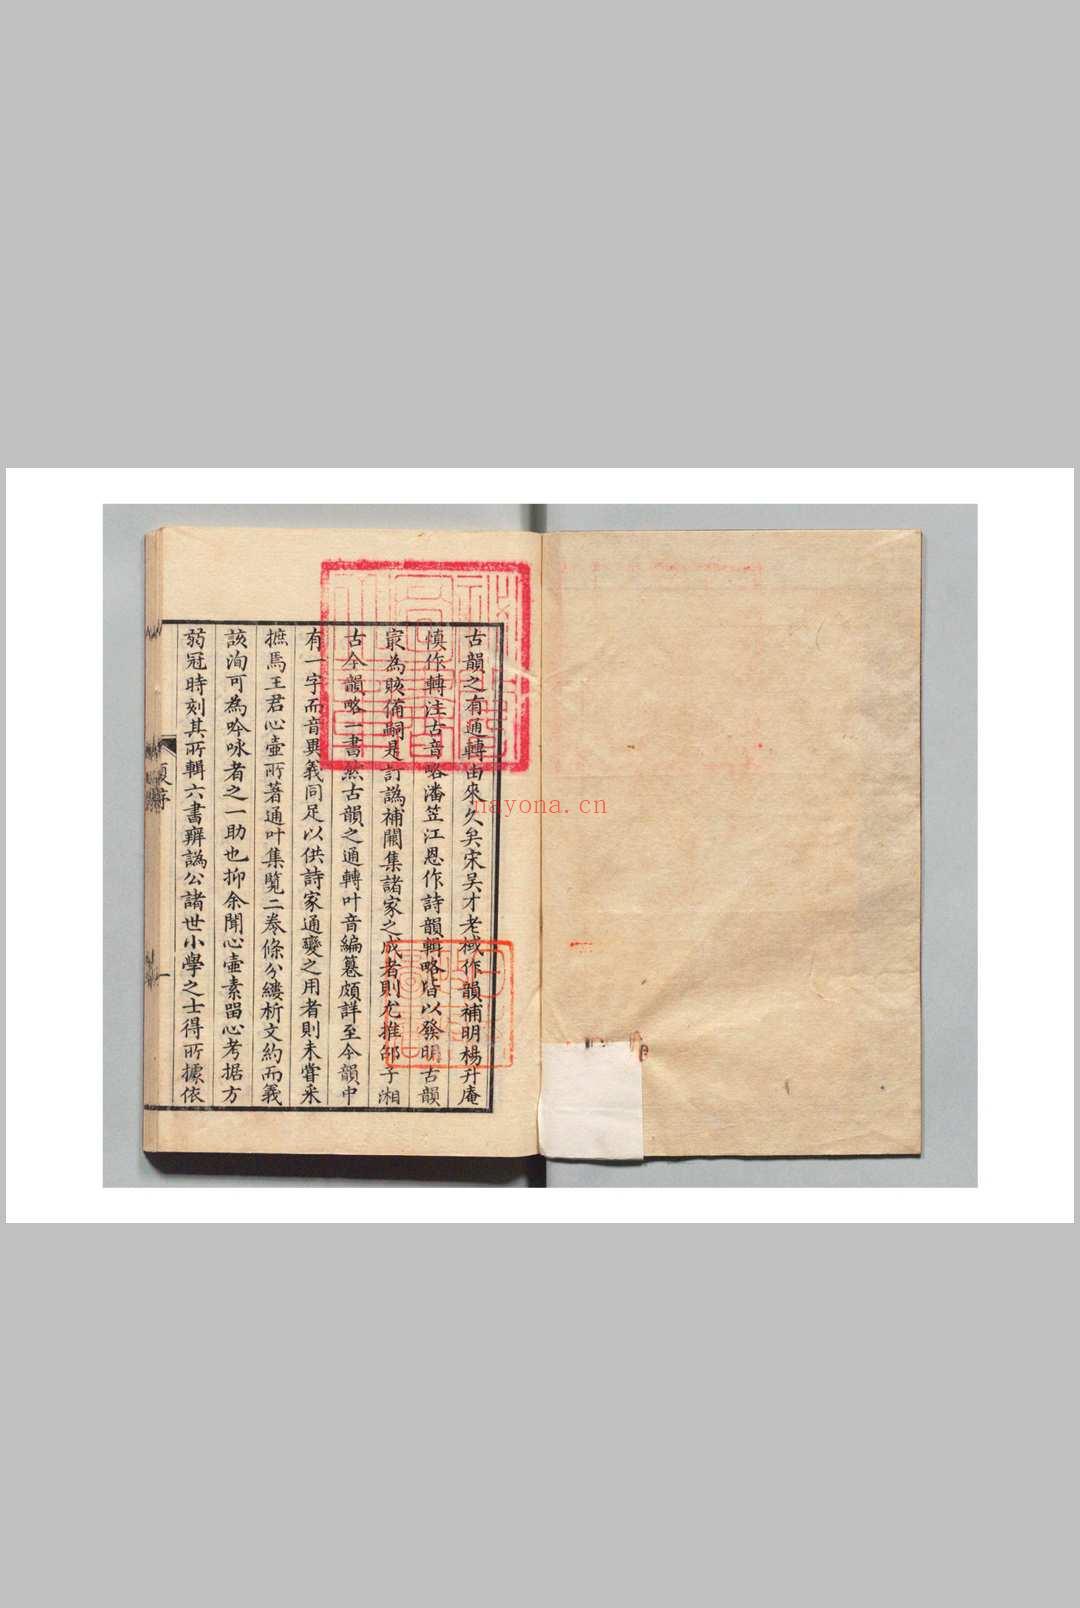 古韻之有通轉由來久矣宋吴才老棫作韻補明楊升庵
慎作轉注古音略潘笠江恩作詩韻輯略皆以發明古韻
㝡為賅備嗣是訂譌補闕集諸家之成者則尤推邵子湘
古今韻略一書然古韻之通轉叶音編纂頗詳至今韻中
有一字而音異義同足以供詩家通變之用者則未嘗采
摭焉王君心壷所著通叶集覽二卷條分縷析文約而義
該洵可為吟咏者之一助也抑余聞心壷素留心考据方
弱冠時刻其所輯六書辨譌公諸世小學之士得所據依
一
nayona.cn